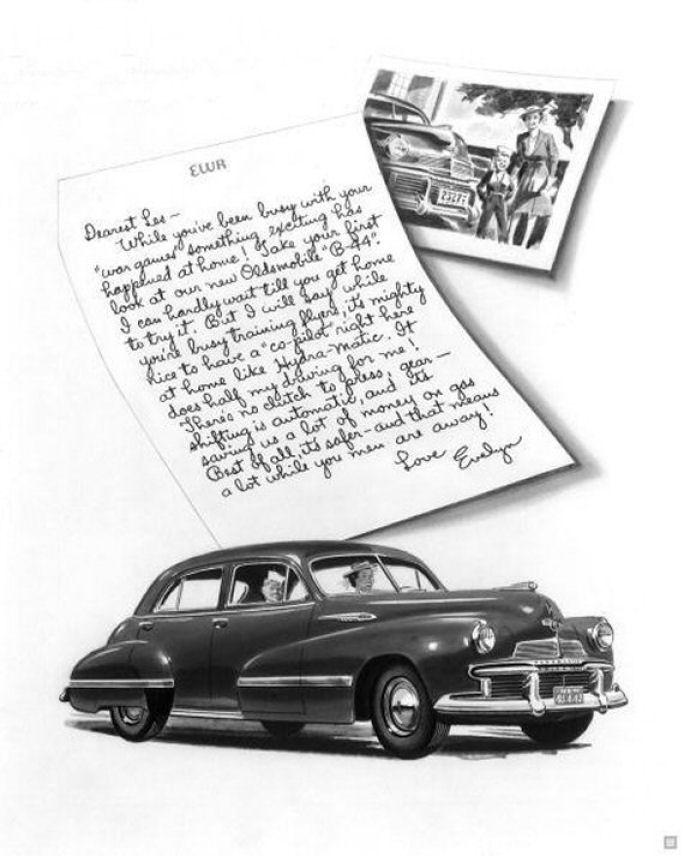 EWR
Dearest Les ~
While you've been busy with your
"war games" something exciting has
happened at home! Take your first
look at our new Oldsmobile "B-44".
I can hardly wait till you get home
to try it. But I will say while
you're busy training flyers, it's mighty
nice to have a "co-pilot" right here
at home like Hydra-Matic. It
does half my driving for me!
There's no clutch to press, gear—
shifting is automatic, and it's
saving us a lot of money on gas
Best of all, it's safer—and that means
a lot while you men are away!
Love Evelyn